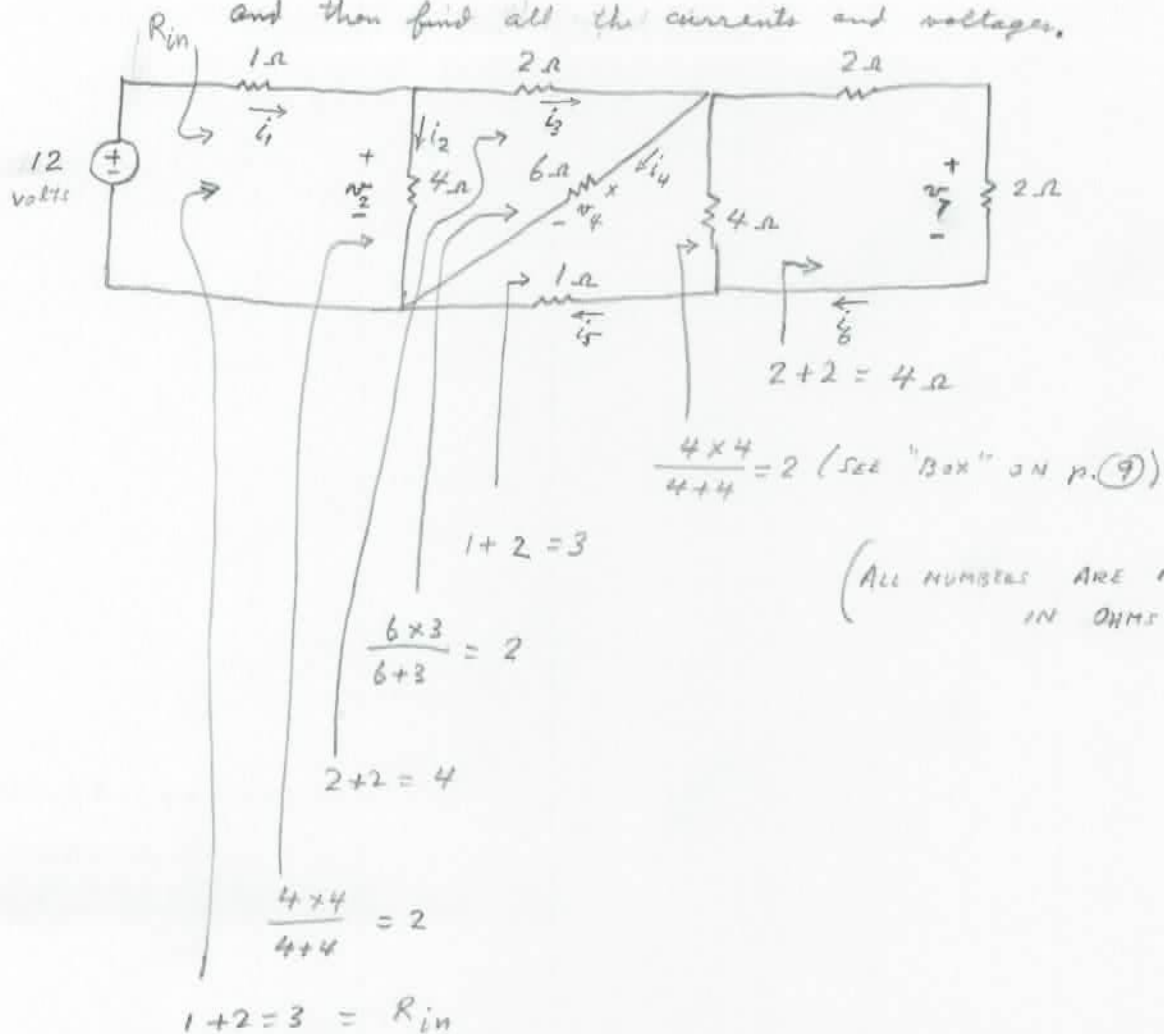 and then find all the currents and voltages.
Rin
1Ω
2Ω
2Ω
i1
i2
i3
12
volts
+
-
+
v2
-
4Ω
6Ω
+
v4
-
i4
4Ω
+
v7
-
2Ω
1Ω
i5
i6
2+2 = 4Ω
4×4/4+4 = 2 (SEE "BOX" ON p. 9)
1+2 = 3
(ALL NUMBERS ARE
IN OHMS
6×3/6+3 = 2
2+2 = 4
4×4/4+4 = 2
1+2=3 = Rin